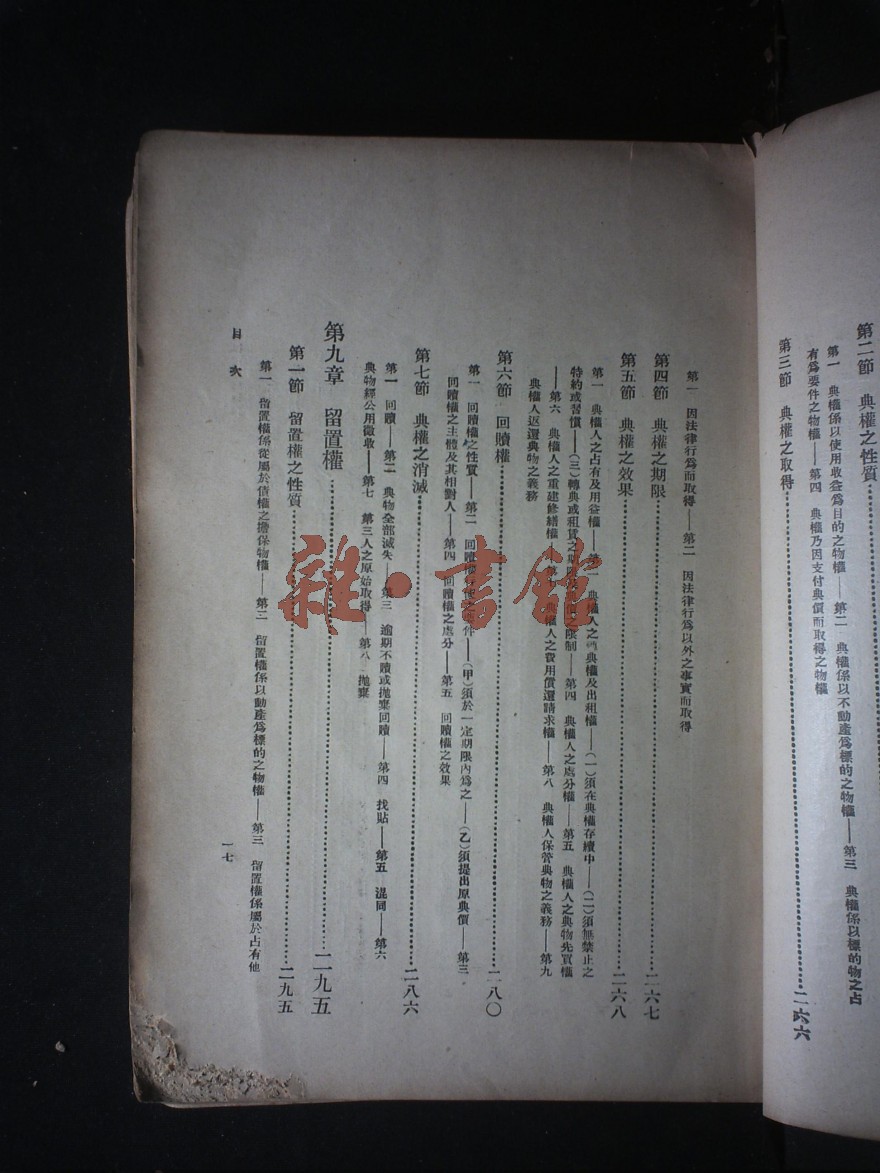 第二節　典權之性質
第一　典權係以使用收益爲目的之物權——第二　典權係以不動產爲標的之物權——第三　典權係以標的物之占
有爲要件之物權——第四　典權乃因支付典價而取得之物權
第三節　典權之取得……二六六
第一　因法律行爲而取得——第二　因法律行爲以外之事實而取得
第四節　典權之期限……二六七
第五節　典權之效果……二六八
第一　典權人之占有及用益權——第二　典權人之轉典權及出租權——（一）須在典權存續中——（二）須無禁止之
特約或習慣——（三）轉典或租賃之期限之限制——第四　典權人之處分權——第五　典權人之典物先買權
——第六　典權人之重建修繕權——典權人之費用償還請求權——第八　典權人保管典物之義務——第九
典權人返還典物之義務
第六節　回贖權……二八〇
第一　回贖權之性質——第二　回贖權之條件——（甲）須於一定期限內爲之——（乙）須提出原典價——第三
回贖權之主體及其相對人——第四　回贖權之處分——第五　回贖權之效果
第七節　典權之消滅……二八六
第一　回贖——第二　典物全部滅失——第三　逾期不贖或拋棄回贖——第四　找貼——第五　混同——第六
典物經公用徵收——第七　第三人之原始取得——第八　拋棄
第九章　留置權……二九五
第一節　留置權之性質……二九五
第一　留置權係從屬於債權之擔保物權——第二　留置權係以動產爲標的之物權——第三　留置權係屬於占有他
目次
一七
雜·書館